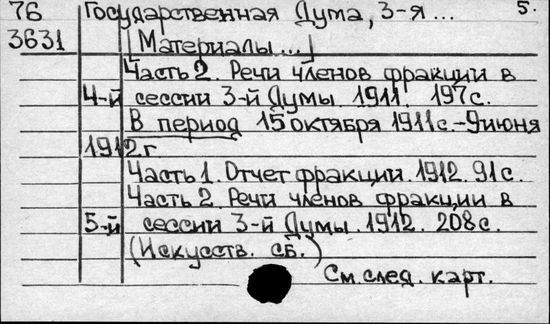 76 Государственная Дума, 3-я ... 5.
3631 [Материалы...]
Часть 2. Речи членов фракции в
4-й сессии 3-й Думы. 1911. 197с.
В период 15 октября 1911с.-9июня
1912г
Часть 1. Отчет фракции. 1912. 91с.
Часть 2. Речи членов фракции в
5-й сессии 3-й Думы. 1912. 208с.
(Искусств. сб.)
См. след. карт.